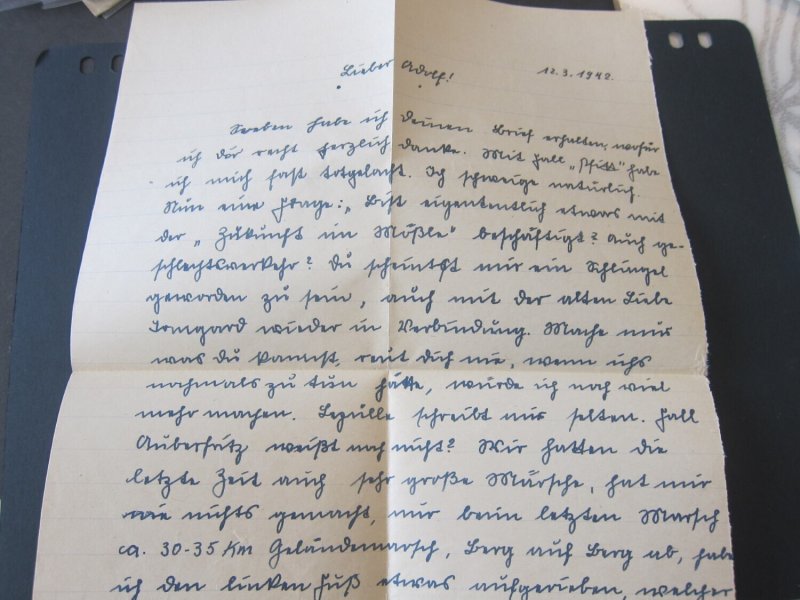 Lieber Adolf! 12.3.1942.
Soeben habe ich Deinen Brief erhalten, wofür
ich dir recht herzlich danke. Mit Fall „Pfitt“ habe
ich mich fast totgelacht. Ich schweige natürlich.
Nun eine Frage: „Bist eigententlich etwas mit
der „Zukunft im Mößle“ beschäftigt? Auch ge-
schlechtsverkehr? Du scheintst mir ein Schlingel
geworden zu sein, auch mit der alten Liebe
Irmgard wieder in Verbindung. Mache nur
was Du kannst, reut Dich nie, wenn ichs
nochmals zu tun hätte, würde ich noch viel
mehr machen. schreibt nur selten. Fall
weißt noch nicht? Wir hatten die
letzte Zeit auch sehr große Märsche, hat mir
nichts gemacht, nur beim letzten Marsch
ca. 30-35 Km Geländemarsch, Berg auf Berg ab, habe
ich den linken Fuß etwas aufgerieben, welcher